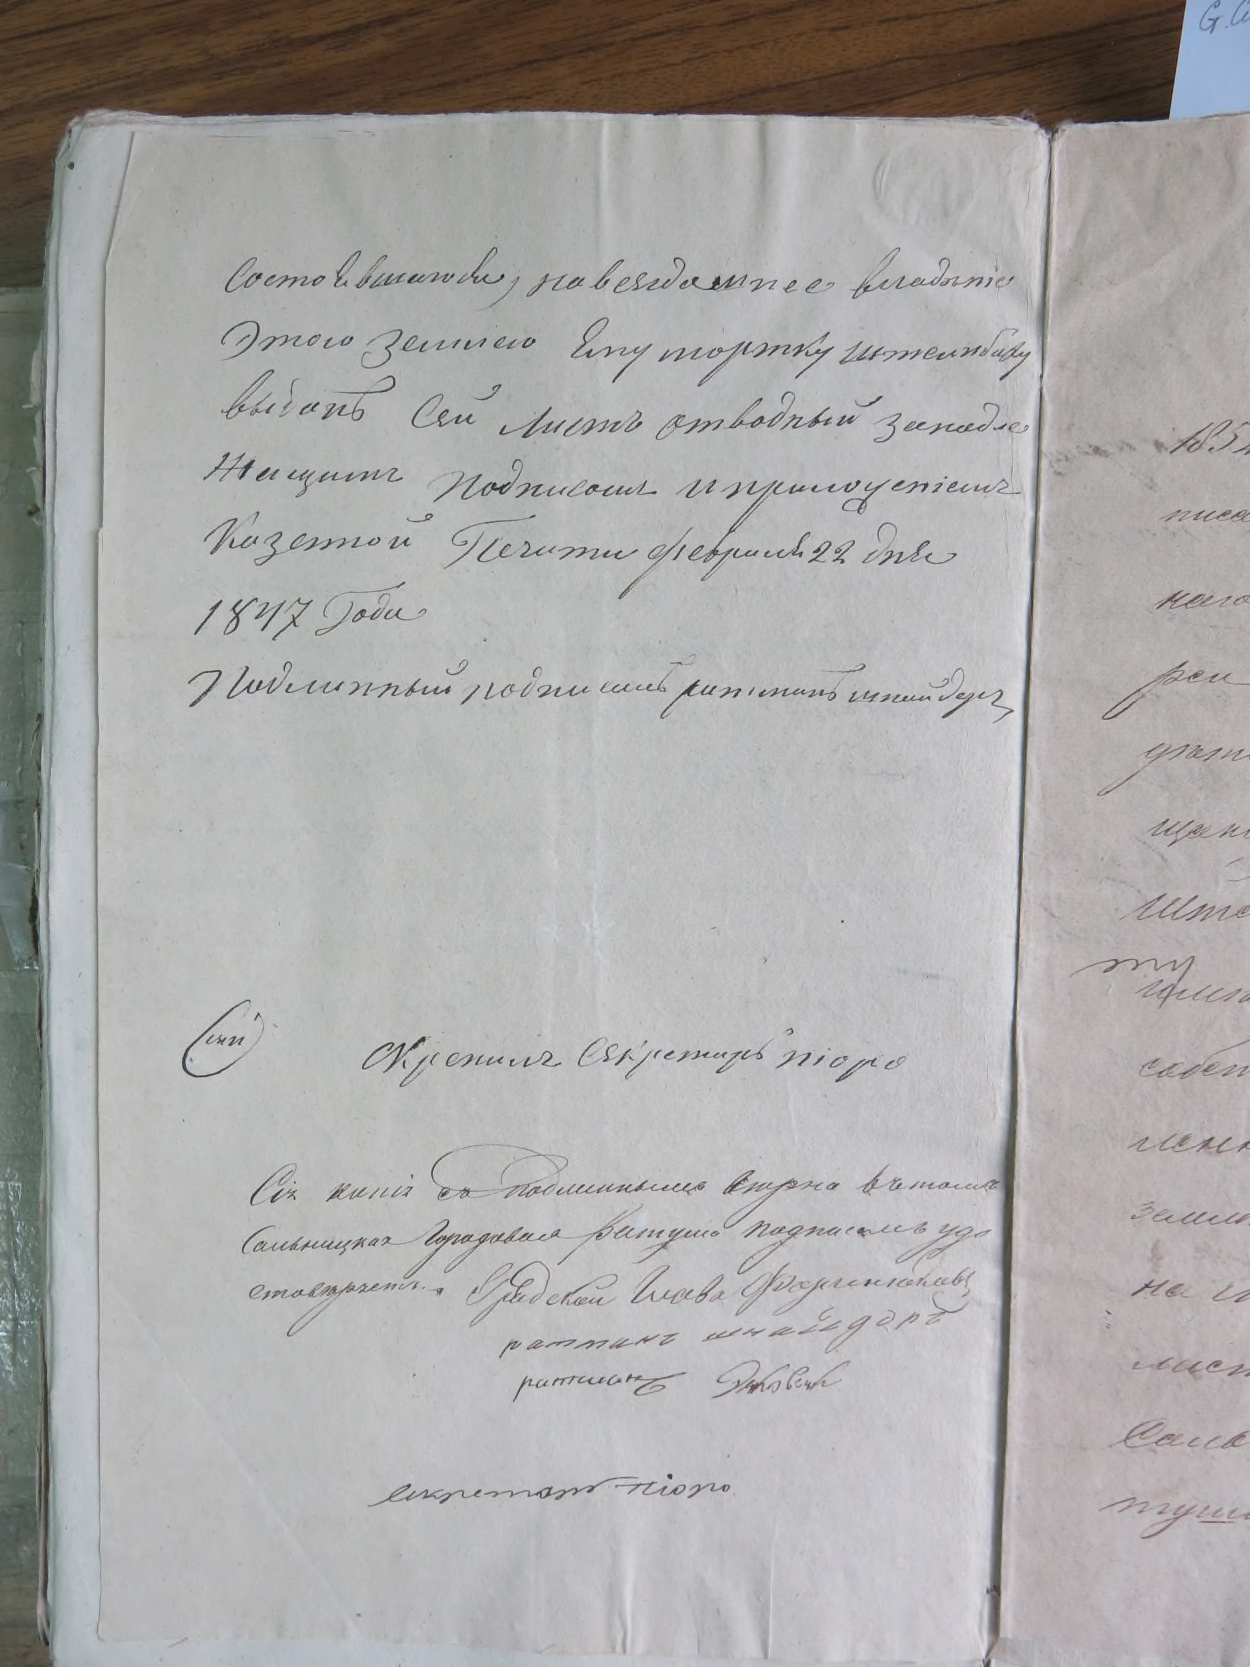 Состоявшагося, на всегдашнее владѣніе
Этою землею Ему торжку штейнбоку
выданъ Сей Листъ отводный занадле
Жащимъ Подписомъ и приложеніемъ
Казенной Печати февраля 22 дня
1847 Года
Подлинный подписалъ ратманъ шнайдеръ,
Скрепилъ Секретарь піоро
Сія копія съ подлиннымъ вѣрна въ томъ
Сальницкая Городовая Ратуша подписомъ удо
стовѣряетъ. Градской Глава
ратманъ шнайдоръ
ратманъ
секретарь Піоро
G.
1852
писа
каго
реи
щен
Ште
ту
собст
земл
на
лист
Саль
туши